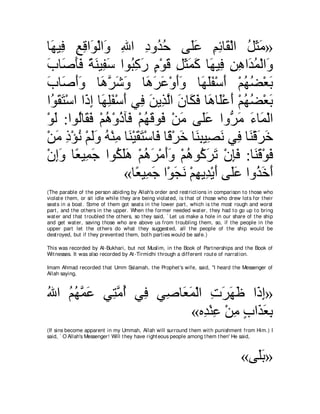 «مَثَلُ الْقَائِمِ عَلَى حُدُودِ اللهِ وَالْوَاقِعِ فِيهَا
كَمَثَلِ قَوْمٍ رَكِبُوا سَفِينَةً فَأَصَابَ
بَعْضُهُمْ أَسْفَلَهَا وَأَوْعَرَهَا وَشَرَّهَا وَأَصَابَ
بَعْضُهُمْ أَعْلَاهَا فَكَانَ الَّذِينَ فِي أَسْفَلِهَا إِذَا اسْتَقَوُا
الْمَاءَ مَرُّوا عَلَى مَنْ فَوْقَهُمْ فَآذَوْهُمْ فَقَالُوا: لَوْ
خَرَقْنَا فِي نَصِيبِنَا خَرْقًا فَاسْتَقَيْنَا مِنْهُ وَلَمْ نُؤْذِ مَنْ
فَوْقَنَا: فَإِنْ تَرَكُوهُمْ وَأَمْرَهُمْ هَلَكُوا جَمِيعًا وَإِنْ
أَخَذُوا عَلَى أَيْدِيهِمْ نَجَوْا جَمِيعًا»
(The parable of the person abiding by Allah's order and restrictions in comparison to those who
violate them, or sit idle while they are being violated, is that of those who drew lots for their
seats in a boat. Some of them got seats in the lower part, which is the most rough and worst
part, and the others in the upper. When the former needed water, they had to go up to bring
water and that troubled the others, so they said, `Let us make a hole in our share of the ship
and get water, saving those who are above us from troubling them, so, if the people in the
upper part let the others do what they suggested, all the people of the ship would be
destroyed, but if they prevented them, both parties would be safe.)
This was recorded by Al-Bukhari, but not Muslim, in the Book of Partnerships and the Book of
Witnesses. It was also recorded by At-Tirmidhi through a different route of narration.
Imam Ahmad recorded that Umm Salamah, the Prophet's wife, said, "I heard the Messenger of
Allah saying,
«إِذَا ظَهَرَتِ الْمَعَاصِي فِي أُمَّتِي عَمَّهُمُ اللهُ
بِعَذَابٍ مِنْ عِنْدِهِ»
(If sins become apparent in my Ummah, Allah will surround them with punishment from Him.) I
said, `O Allah's Messenger! Will they have righteous people among them then' He said,
«بَلَى»